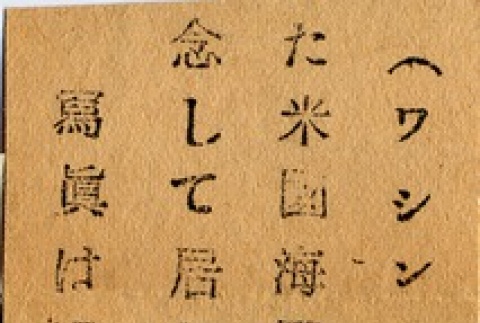 （ワシン
た米國海
念して居
寫眞は